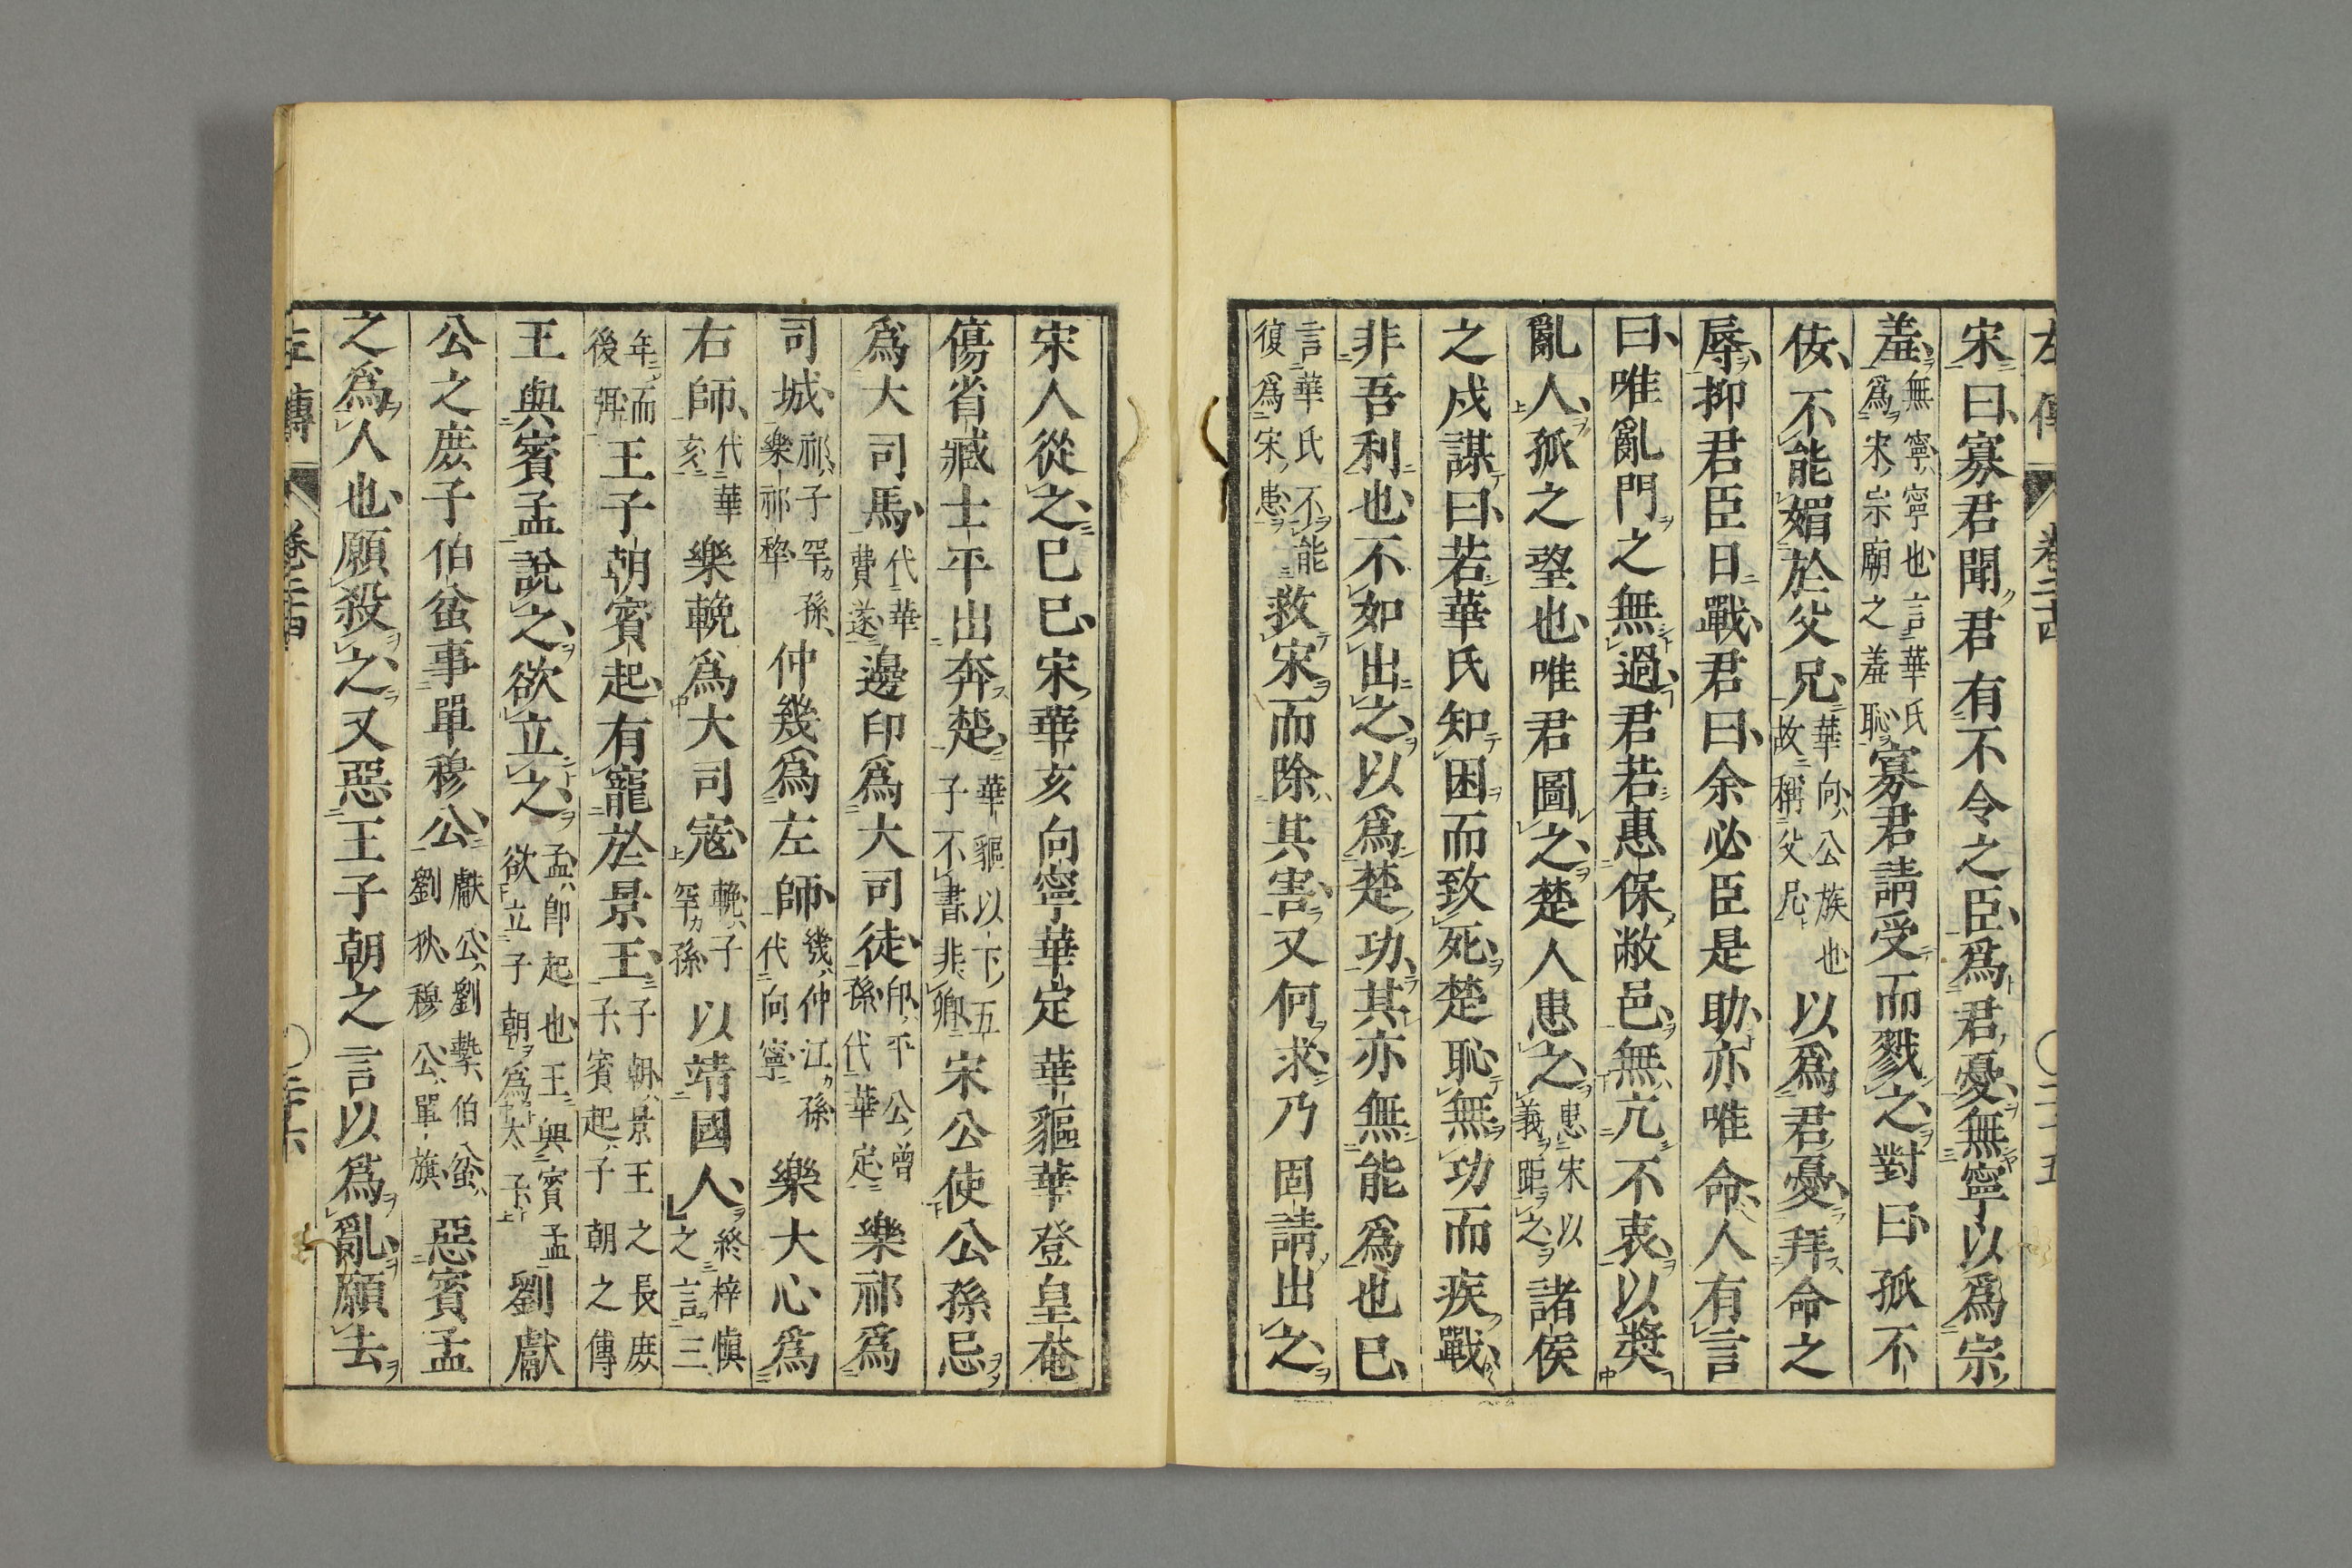 左傳 卷二十四 〇二十五
宋曰寡君聞君有不令之臣爲君憂無寧以爲宗
羞無寧寧也言華氏爲宋宗廟之羞恥寡君請受而戮之對曰孤不
佞不能媚於父兄華向公族也故稱父兄以爲君憂拜命之
辱抑君臣日戰君曰余必臣是助亦唯命人有言
曰唯亂門之無過君若惠保敝邑無亢不衷以奬
亂人孤之望也唯君圖之楚人患之患宋以義距之諸侯
之戍謀曰若華氏知困而致死楚恥無功而疾戰
非吾利也不如出之以爲楚功其亦無能爲也已
言華氏不能復爲宋患救宋而除其害又何求乃固請出之
宋人從之己巳宋華亥向寧華定華貙華登皇奄
傷省臧士平出奔楚華貙以下五子不書非卿宋公使公孫忌
爲大司馬代華費遂邊卬爲大司徒卬平公曾孫代華定樂祁爲
司城祁子罕孫樂祁犂仲幾爲左師幾仲江孫代向寧樂大心爲
右師代華亥樂輓爲大司寇輓子罕孫以靖國人終梓愼之言三
年而後弭王子朝賓起有寵於景王子朝景王之長庶子賓起子朝之傅
王與賓孟說之欲立之孟卽起也王與賓孟欲立子朝爲太子劉獻
公之庶子伯蚠事單穆公獻公劉摯伯蚠劉狄穆公單旗惡賓孟
之爲人也願殺之又惡王子朝之言以爲亂願去
左傳 卷二十四 〇二十六